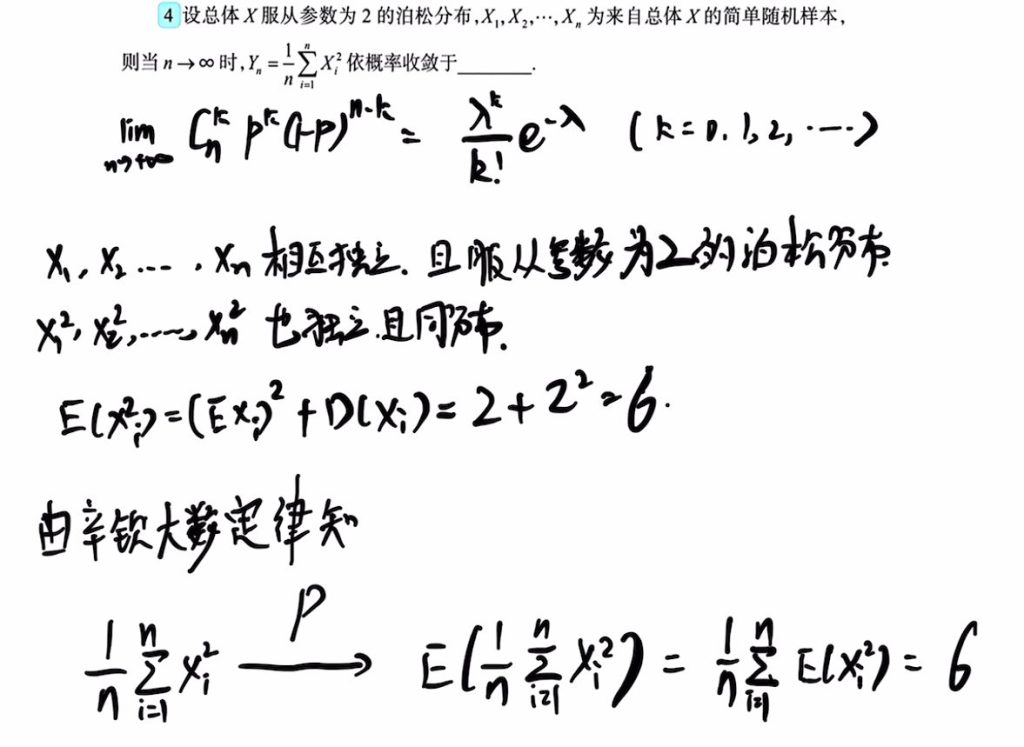 4 设总体 X 服从参数为 2 的泊松分布,X₁,X₂,⋯,Xₙ 为来自总体 X 的简单随机样本,
则当 n→∞ 时,Yₙ = 1/n ∑_{i=1}^{n} Xᵢ² 依概率收敛于______.
lim_{n→+∞} Cₙᵏ pᵏ (1-p)ⁿ⁻ᵏ = λᵏ/k! e^{-λ} (k=0.1,2,⋯⋯)
X₁, X₂ ⋯ , Xₙ 相互独立. 且服从参数为2的泊松分布.
X₁², X₂², ⋯⋯, Xₙ² 也独立.且同分布.
E(Xᵢ²) = (EXᵢ)² + D(Xᵢ) = 2 + 2² = 6.
由辛钦大数定律知
1/n ∑_{i=1}^{n} Xᵢ² —P→ E(1/n ∑_{i=1}^{n} Xᵢ²) = 1/n ∑_{i=1}^{n} E(Xᵢ²) = 6